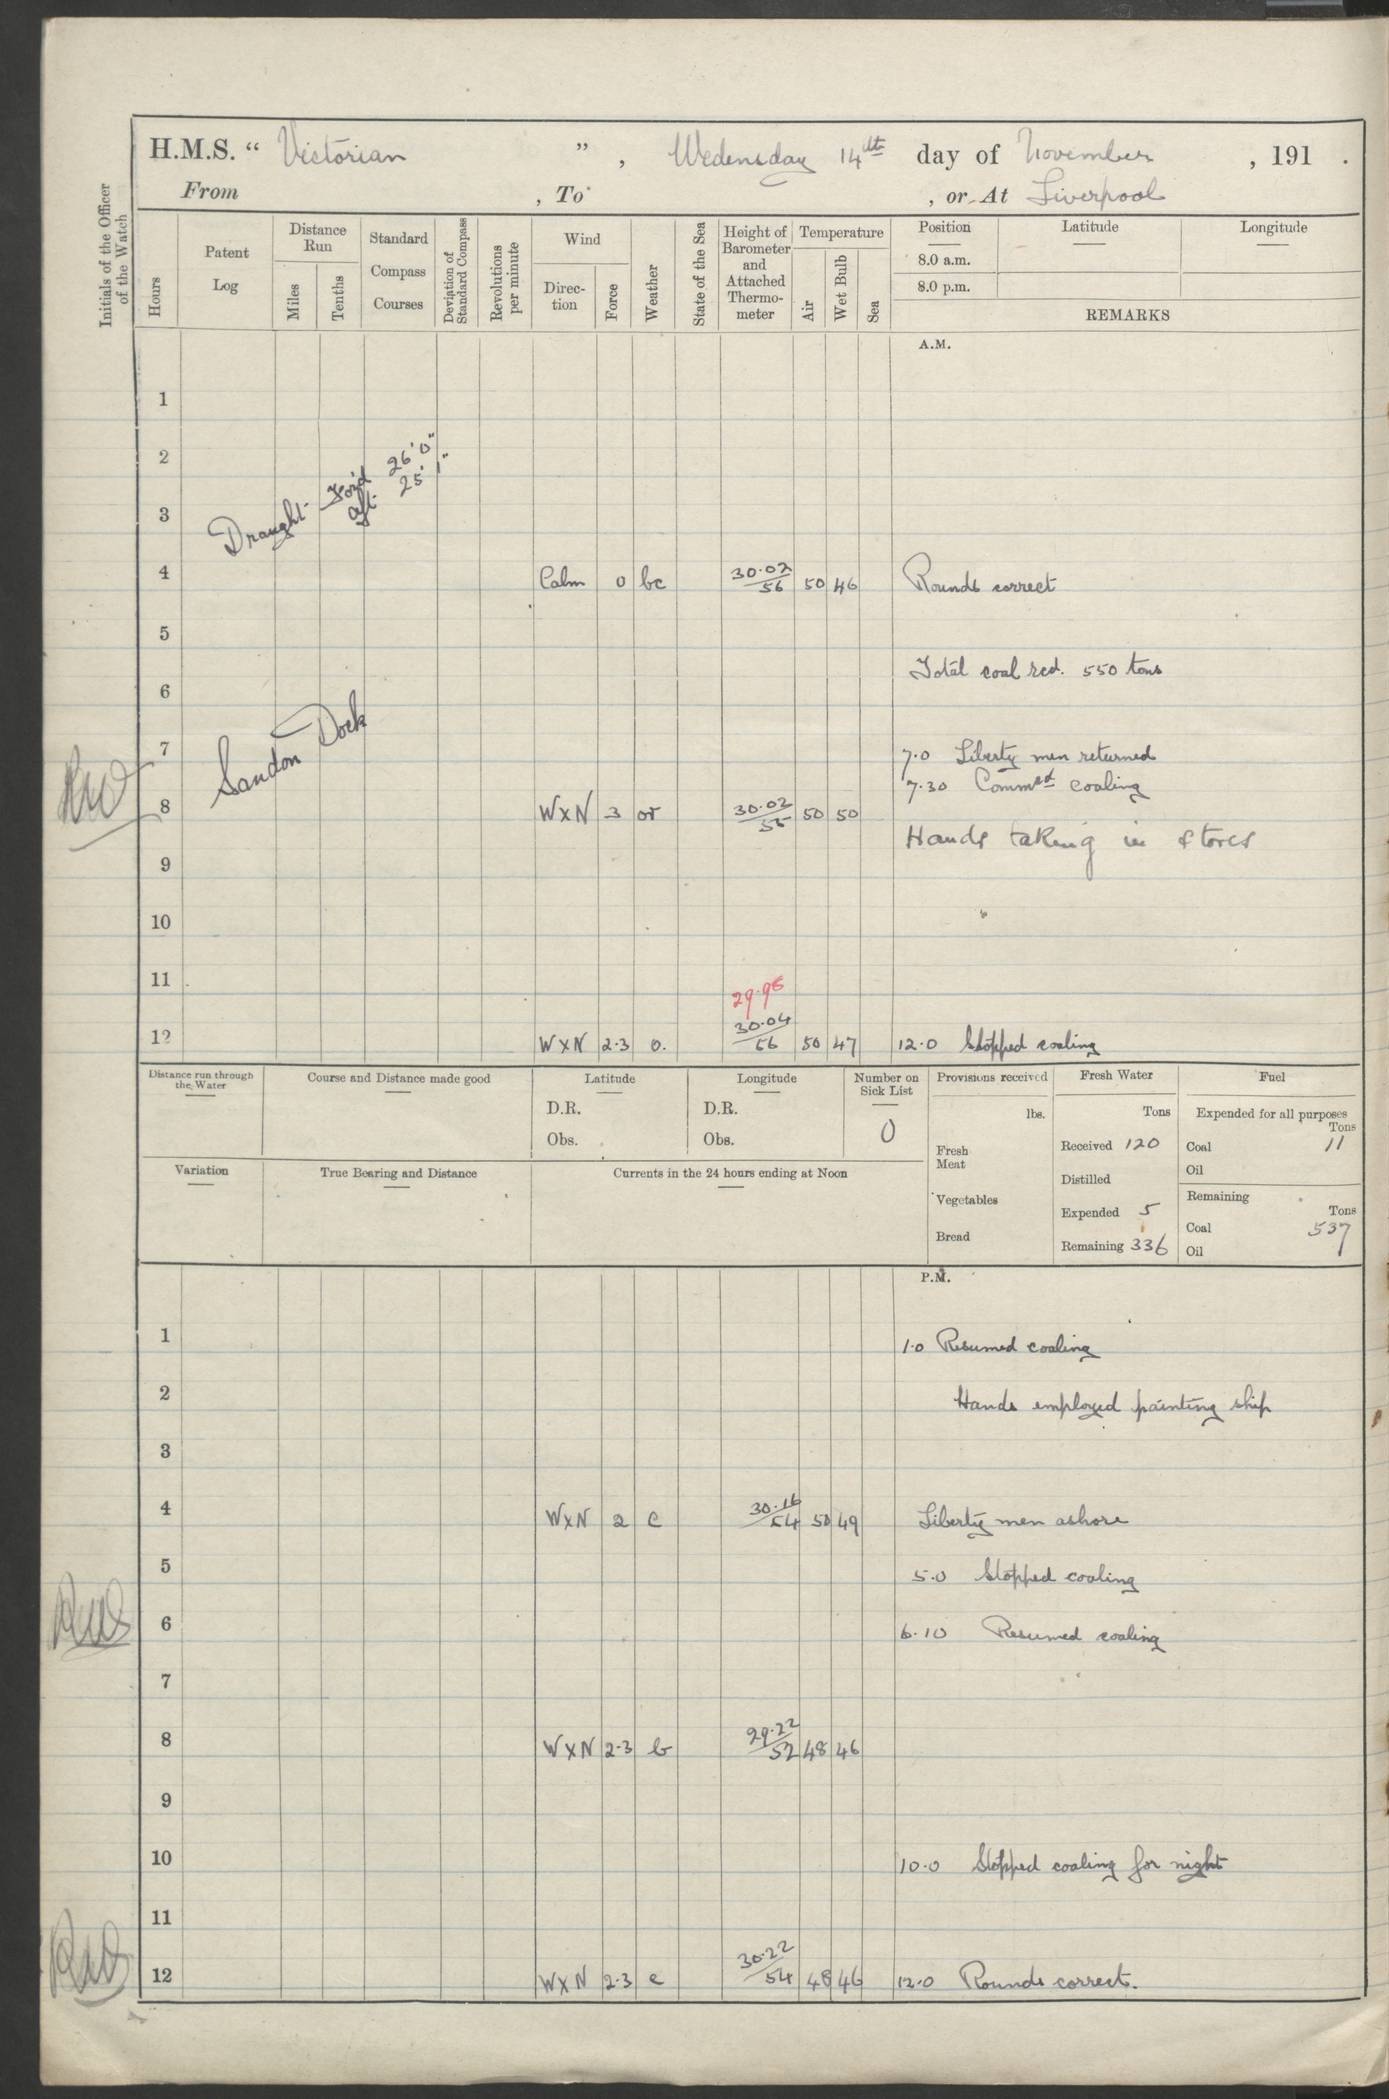 H.M.S. “ Victorian ” , Wedensday 14th day of November , 191 .
From , To , or At Liverpool
Initials of the Officer of the Watch
Hours
Patent Log
Distance Run
Miles
Tenths
Standard Compass Courses
Deviation of Standard Compass
Revolutions per minute
Wind
Direc-tion
Force
Weather
State of the Sea
Height of Barometer and Attached Thermo-meter
Temperature
Air
Wet Bulb
Sea
Position
8.0 a.m.
8.0 p.m.
Latitude
Longitude
REMARKS
A.M.
1
2
Draught For'd 26' 0"
aft 25' 1"
3
4 Calm 0 bc 30.02/56 50 46 Rounds correct
5
Total coal rcd. 550 tons
6
Sandon Dock
7 7.0 Liberty men returned
7.30 Commcd coaling
8 W x N 3 or 30.03/55 50 50
Hands taking in stores
9
10
11
29.96
12 W x N 2.3 o. 30.04/56 50 47 12.0 Stopped coaling
Distance run through the Water
Course and Distance made good
Latitude
D.R.
Obs.
Longitude
D.R.
Obs.
Number on Sick List
0
Provisions received
lbs.
Fresh Meat
Vegetables
Bread
Fresh Water
Tons
Received 120
Distilled
Expended 5
Remaining 336
Fuel
Expended for all purposes
Tons
Coal 11
Oil
Remaining
Tons
Coal 537
Oil
Variation
True Bearing and Distance
Currents in the 24 hours ending at Noon
P.M.
1 1.0 Resumed coaling
2 Hands employed painting ship
3
4 W x N 2 c 30.16/54 50 49 Liberty men ashore
5 5.0 Stopped coaling
6 6.10 Resumed coaling
7
8 W x N 2.3 b 29.22/52 48 46
9
10 10.0 Stopped coaling for night
11
12 W x N 2.3 c 30.22/54 48 46 12.0 Rounds correct.